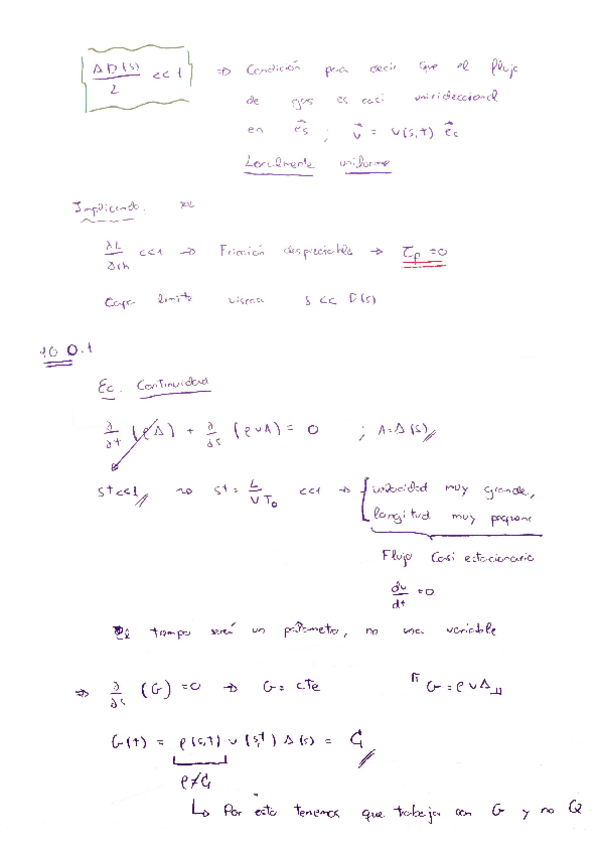 ΔD(s)/2 << 1 ⇒ Condición para decir que el flujo
de gas es casi unirideccional
en e⃗s ; v⃗ = v(s,t) e⃗s
Localmente uniforme
Implicando.
λL/Drh <<1 → Fricción despreciable → τp = 0
Capa limite viscosa δ << D(s)
10 0.1
Ec. Continuidad
∂/∂t (ρA) + ∂/∂s (ρvA) = 0 ; A = A(s)
St<<1 St = L/VT₀ <<1 → velocidad muy grande,
longitud muy pequeña
Flujo Casi estacionario
du/dt = 0
El tiempo será un parámetro, no una variable
⇒ ∂/∂s (G) = 0 → G = cte G = ρvA
G(t) = ρ(s,t) v(s,t) A(s) = G
ρ≠G
↳ Por esto tenemos que trabajar con G y no Q